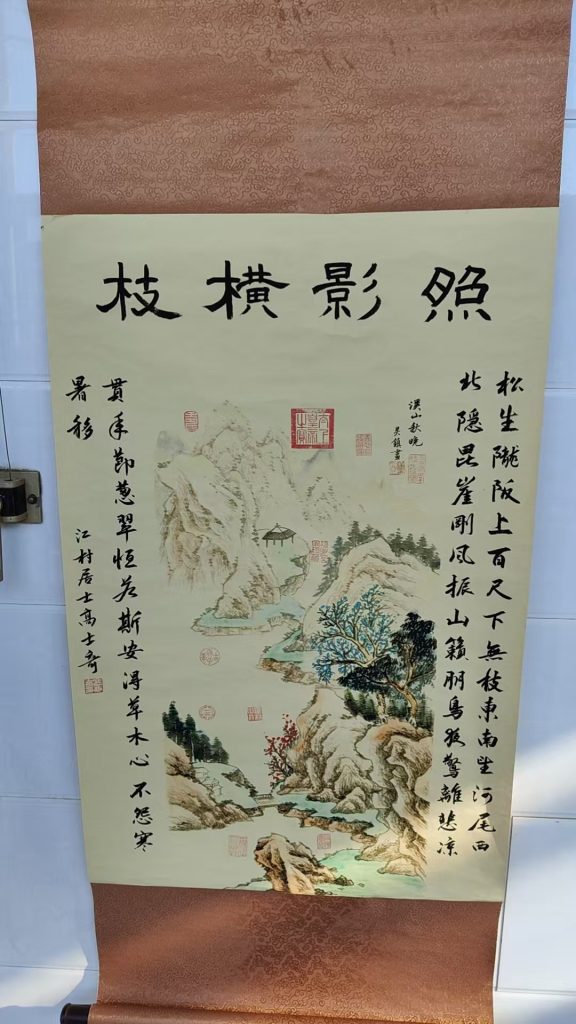 照影橫枝
松生隴阪上百尺下無枝東南望河尾西
北隱昆崖剛風振山籟朋鳥夜驚離悲涼
貫年節葱翠恒若斯安得草木心不怨寒
暑移
江村居士高士奇
溪山秋晚
吳鎮畫